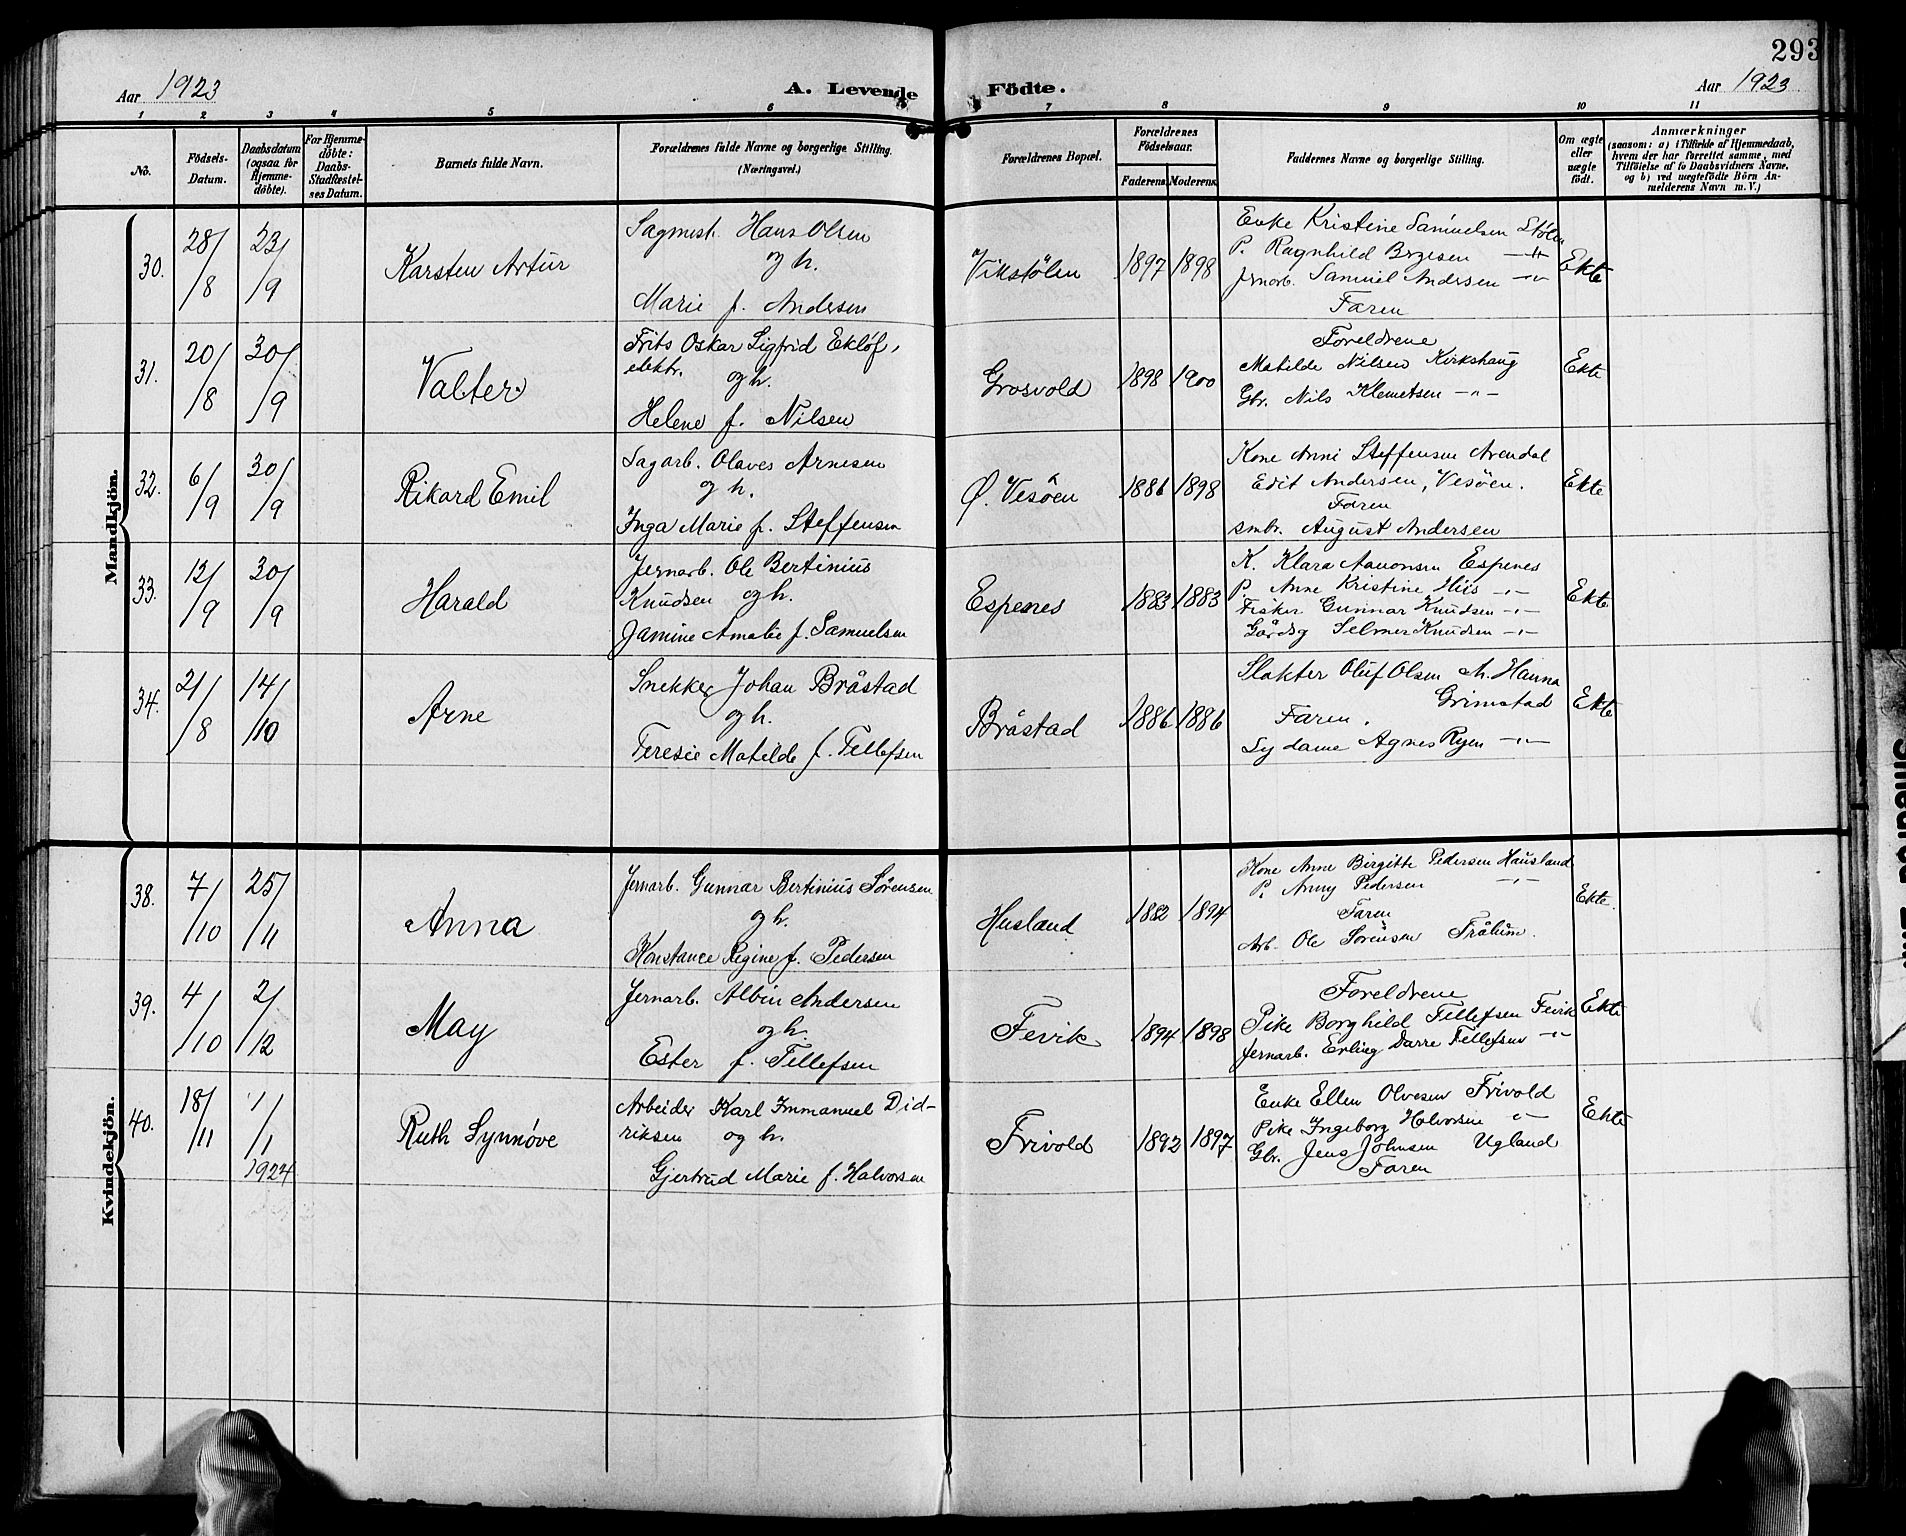 293
Aar 1923
A. Levende Födte.
Aar 1923
1 2 3 4 5 6 7 8 9 10 11
No.
Födsels-
Datum.
Daabsdatum
(ogsaa for
Hjemme-
döbte).
For Hjemme-
döbte:
Daabs-
Stadfæstel-
ses Datum.
Barnets fulde Navn.
Forældrenes fulde Navne og borgerlige Stilling.
(Næringsvei.)
Forældrenes Bopæl.
Forældrenes
Födselsaar.
Faderens. Moderens.
Faddernes Navne og borgerlige Stilling.
Om ægte
eller
uægte
født.
Anmærkninger
(saasom: a) i Tilfælde af Hjemmedaab,
hvem der har forrettet samme, med
Tilföielse af to Daabsvidners Navne,
og b) ved uægtefödte Börn An-
melderens Navn m. V.)
Mandkjön.
30.
28/8
23/9
Karsten Artur
Sagmest. Hans Olsen
og h.
Marie f. Andersen
Vikstölen
1897 1898
Enke Kristine Samuelsen Stölen
P. Ragnhild —"—
Jernarb. Samuel Andersen —"—
Faren
Ekte
31.
20/8
30/9
Valter
Frits Oskar Sigfrid Ekløf,
elektr. og h.
Helene f. Nilsen
Grosvold
1898 1900
Foreldrene
Matilde Nilsen Kirkshaug
Gbr. Nils Klemetsen —"—
Ekte
32.
6/9
30/9
Rikard Emil
Sagarb. Olaves Arnesen
og h.
Inga Marie f. Steffensen
Ø. Vesöen
1886 1898
Kone Anni Steffensen Arendal
Edit Andersen, Vesöen.
Faren
smbr. August Andersen
Ekte
33.
12/9
30/9
Harald
Jernarb. Ole Bertinius
Knudsen og h.
Jamine Amalie f. Samuelsen
Espenes
1883 1883
K. Klara Aanonsen Espenes
P. Anne Kristine Hiis —"—
Fisker Gunnar Knudsen —"—
Gårdsg Selmer Knudsen —"—
Ekte
34.
21/8
14/10
Arne
Snekker Johan Bråstad
og h.
Teresie Matilde f. Tellefsen
Bråstad
1886 1886
Slakter Oluf Olsen M. Hanna
Grimstad
Faren.
Sydame Agnes Ryen —"—
Ekte
Kvindekjön.
38.
7/10
25/11
Anna
Jernarb. Gunnar Bertinius Sörensen
og h.
Konstance Regine f. Pedersen
Husland
1882 1894
Kone Anne Birgitte Pedersen Hausland
P. Anny Pedersen —"—
Faren
Arb. Ole Sörensen Trålum.
Ekte.
39.
4/10
2/12
May
Jernarb. Albin Andersen
og h.
Ester f. Tellefsen
Fevik
1894 1898
Foreldrene
Pike Borghild Tellefsen Fevik
Jernarb. Erling Darre Tellefsen —"—
Ekte
40.
18/11
1/1
1924
Ruth Synnøve
Arbeider Karl Immanuel Did-
riksen og h.
Gjertrud Marie f. Halvorsen
Frivold
1892 1897
Enke Ellen Olvesen Frivold
Pike Ingeborg Halvorsen "—
Gbr. Jens Johnsen Ugland
Faren
Ekte